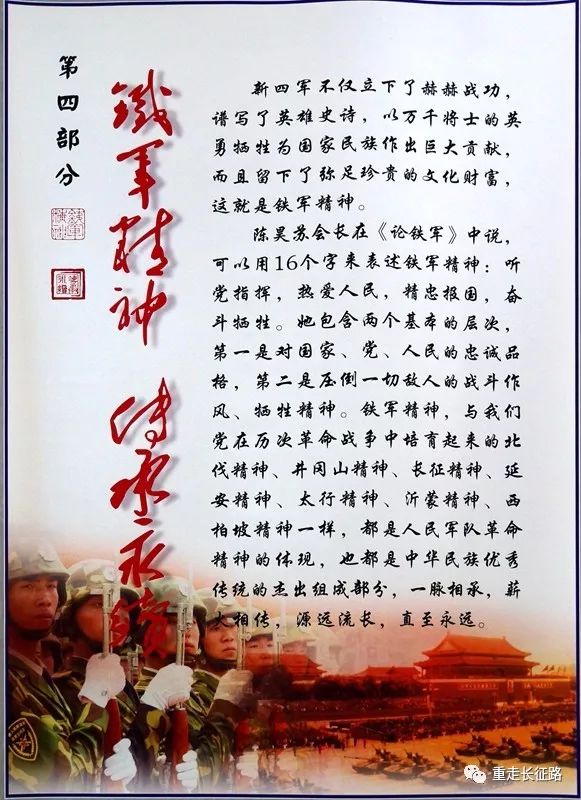 第四部分
铁军精神 传承永续
新四军不仅立下了赫赫战功，
谱写了英雄史诗，以万千将士的英
勇牺牲为国家民族作出巨大贡献，
而且留下了弥足珍贵的文化财富，
这就是铁军精神。
陈昊苏会长在《论铁军》中说，
可以用16个字来表述铁军精神：听
党指挥，热爱人民，精忠报国，奋
斗牺牲。她包含两个基本的层次，
第一是对国家、党、人民的忠诚品
格，第二是压倒一切敌人的战斗作
风、牺牲精神。铁军精神，与我们
党在历次革命战争中培育起来的北
伐精神、井冈山精神、长征精神、延
安精神、太行精神、沂蒙精神、西
柏坡精神一样，都是人民军队革命
精神的体现，也都是中华民族优秀
传统的杰出组成部分，一脉相承，薪
火相传，源远流长，直至永远。
重走长征路